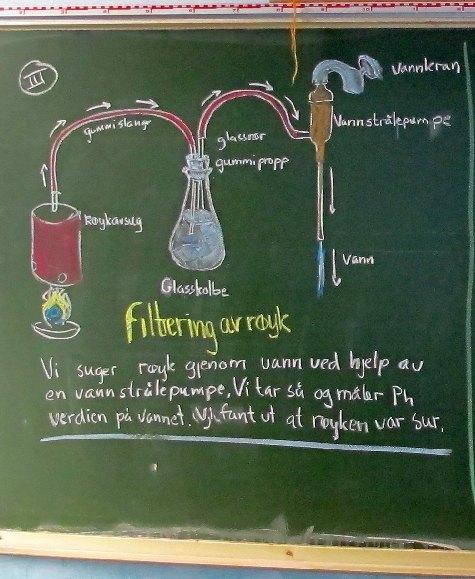 III
vannkran
gummislange
Vannstrålepumpe
glassrør
gummipropp
Røykavsug
Vann
Glasskolbe
Filtrering av røyk
Vi suger røyk gjenom vann ved hjelp av
en vannstrålepumpe. Vi tar så og måler Ph
verdien på vannet. Vi fant ut at røyken var sur.